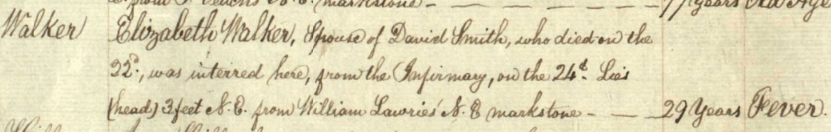 markstone - 77 years Old Age
Walker Elizabeth Walker, Spouse of David Smith, who died on the
22d, was interred here, from the Infirmary, on the 24th. Lies
(head) 3 feet N. E. from William Lawries' N. E markstone - - 29 Years Fever.